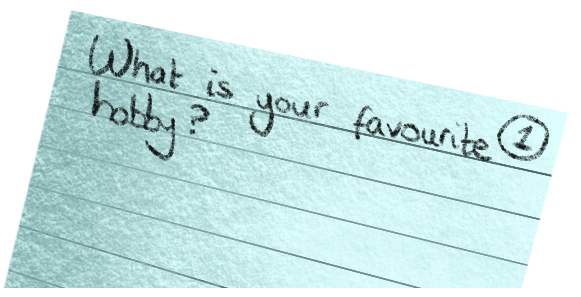 What is your favourite 1
hobby?